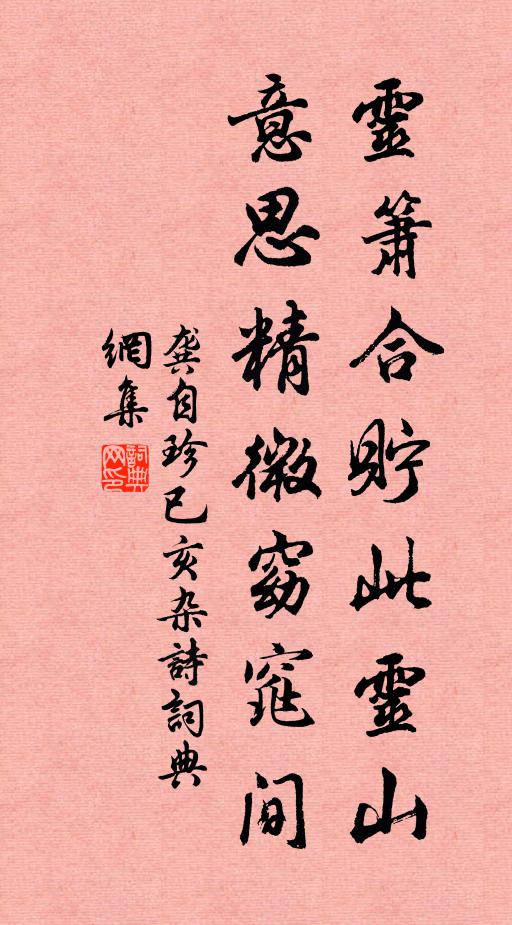 靈簫合貯此靈山
意思精微窈窕间
龚自珍己亥杂詩詞典
網集
詞典
网印